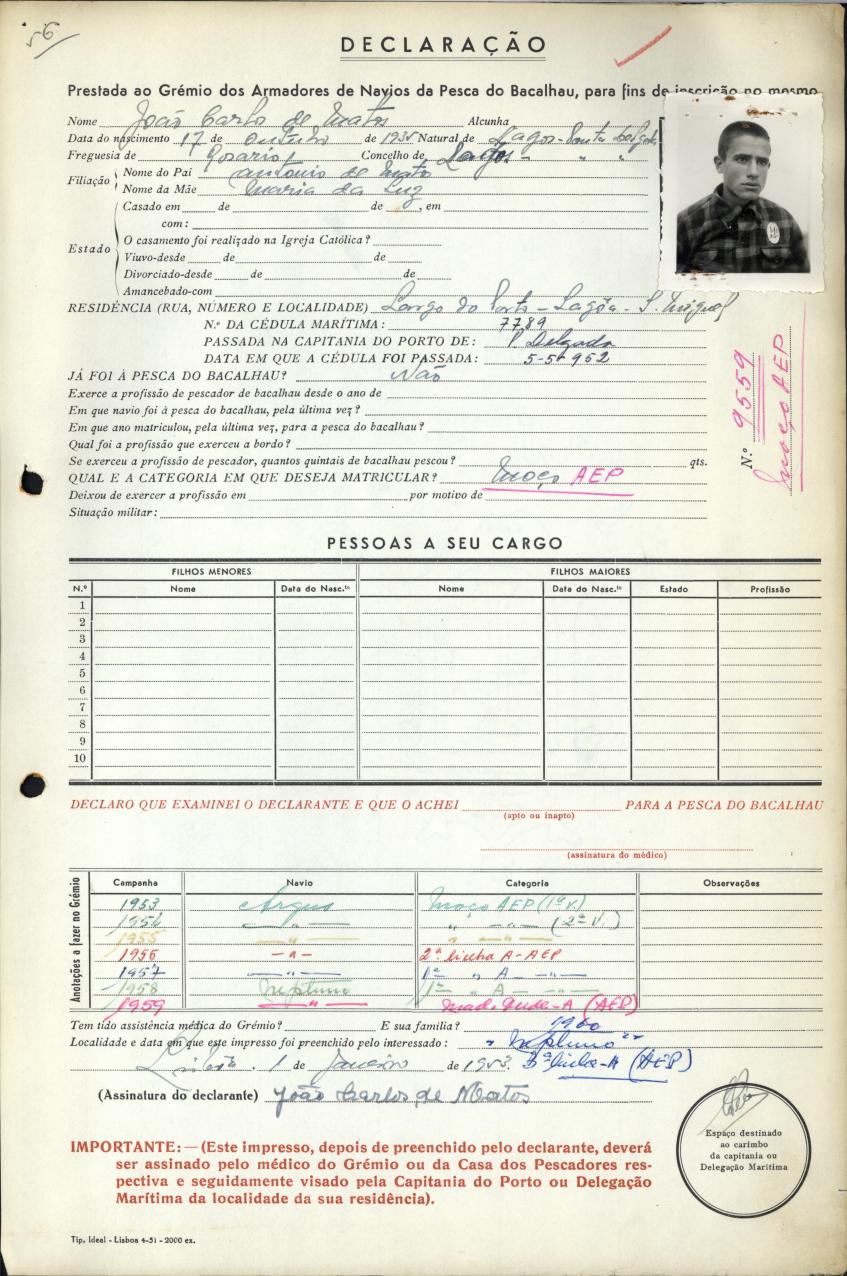 56
DECLARAÇÃO
Prestada ao Grémio dos Armadores de Navios da Pesca do Bacalhau, para fins de inscrição no mesmo
Nome João Carlo de Matos Alcunha
Data do nascimento 17 de Outubro de 1935 Natural de Lagos - Ponta Delgada
Freguesia de Rosario Concelho de Lagôs - " "
Filiação
Nome do Pai Antonio de Mato
Nome da Mãe Maria da Luz
Estado
Casado em de de , em
com:
O casamento foi realizado na Igreja Católica?
Viuvo-desde de de
Divorciado-desde de de
Amancebado-com
RESIDÊNCIA (RUA, NÚMERO E LOCALIDADE) Largo do Porto - Lagôa - S. Miguel
N.º DA CÉDULA MARÍTIMA: 7789
PASSADA NA CAPITANIA DO PORTO DE: P. Delgada
DATA EM QUE A CÉDULA FOI PASSADA: 5-5-952
JÁ FOI À PESCA DO BACALHAU? Não
Exerce a profissão de pescador de bacalhau desde o ano de
Em que navio foi à pesca do bacalhau, pela última vez?
Em que ano matriculou, pela última vez, para a pesca do bacalhau?
Qual foi a profissão que exerceu a bordo?
Se exerceu a profissão de pescador, quantos quintais de bacalhau pescou? qts.
QUAL E A CATEGORIA EM QUE DESEJA MATRICULAR? Moço AEP
Deixou de exercer a profissão em por motivo de
Situação militar:
N.º 9559
Moço AEP
PESSOAS A SEU CARGO
FILHOS MENORES FILHOS MAIORES
N.º Nome Data do Nasc.to Nome Data do Nasc.to Estado Profissão
1
2
3
4
5
6
7
8
9
10
DECLARO QUE EXAMINEI O DECLARANTE E QUE O ACHEI PARA A PESCA DO BACALHAU
(apto ou inapto)
(assinatura do médico)
Anotações a fazer no Grémio
Campanha Navio Categoria Observações
1953 Argus Moço AEP (1ª V.)
1954 — " — " — " — (2ª V.)
1955 — " — " — " —
1956 — " — 2ª linha A - AEP
1957 — " — 1ª " A — " —
1958 Neptuno 1ª " A — " —
1959 — " — Mad. Gude-A (AEP)
Tem tido assistência médica do Grémio? E sua familia? 1960
Localidade e data em que este impresso foi preenchido pelo interessado: "Neptuno"
Lisboa, 1 de Janeiro de 1953. 3ª linha-A (AEP)
(Assinatura do declarante) João Carlos de Matos
Espaço destinado
ao carimbo
da capitania ou
Delegação Marítima
IMPORTANTE: — (Este impresso, depois de preenchido pelo declarante, deverá
ser assinado pelo médico do Grémio ou da Casa dos Pescadores res-
pectiva e seguidamente visado pela Capitania do Porto ou Delegação
Marítima da localidade da sua residência).
Tip. Ideal - Lisboa 4-51 - 2000 ex.